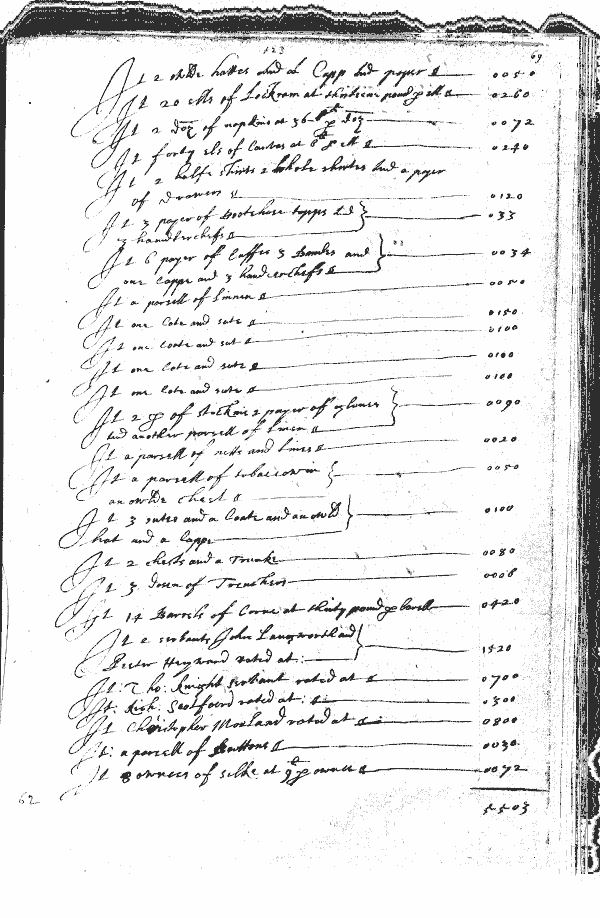 123
69
It 2 owlde hattes and a Capp and payer 0050
It 20 ells of Lockram at thirteene pound p ell 0260
It 2 doz of napkins at 36 p doz 0072
It forty els of Canvas at 6 p ell 0240
It 2 halfe shirts 2 whole shirtes and a payer
of drawers 0120
It 3 payer of Boothose topps and 033
3 handkercheifs
It 6 payer of Cuffes 3 Bandes and 0034
one Cappe and 3 handkercheifs
It a parsell of Linnen 0050
It one Cote and sute 0150
It one Coate and sut 0100
It one Cote and sute 0100
It one Cote and sute 0100
It 2 p of stockins 2 payer of gloves 0090
and another parsell of Linen
It a parsell of netts and lines 0020
It a parsell of tobacco in 0050
an owlde chest
It 3 sutes and a Coate and an owld 0100
hat and a Cappe
It 2 chests and a Trunke 0080
It 3 dosen of Trenchers 0006
It 14 Barrels of Corne at thirty pound p barell 0420
It 2 servants John Langworth and 1520
Peeter Heyward rated at :
It: Tho: Knight servant rated at 0700
It: Rich: Scotford rated at : 0300
It Christopher Morland rated at 0800
It: a parsell of Buttons 0030
It 8 ownces of silke at 9 p ownce 0072
62
5503